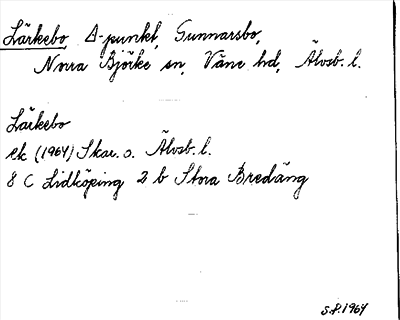 Lärkebo, Δ-punkt, Gunnarsbo,
Norra Björke sn, Väne hd, Älvsb. l.
Lärkebo
ek (1964) Skar. o. Älvsb. l.
8 C Lidköping 2 b Stora Bredäng
S.P. 1964